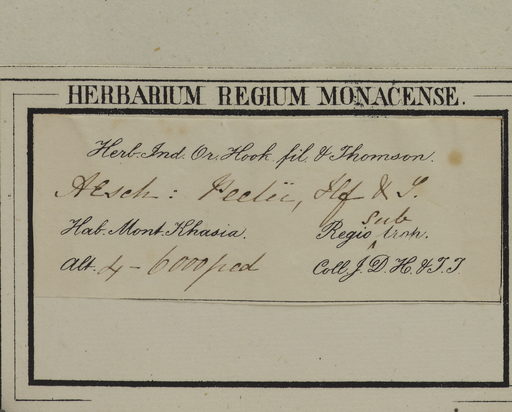 HERBARIUM REGIUM MONACENSE.
Herb. Ind. Or. Hook. fil. & Thomson.
Aesch: Peelii, Hf & T.
Hab. Mont. Khasia. Regio sub trop.
Alt. 4–6000 ped Coll. J. D. H. & T. T.